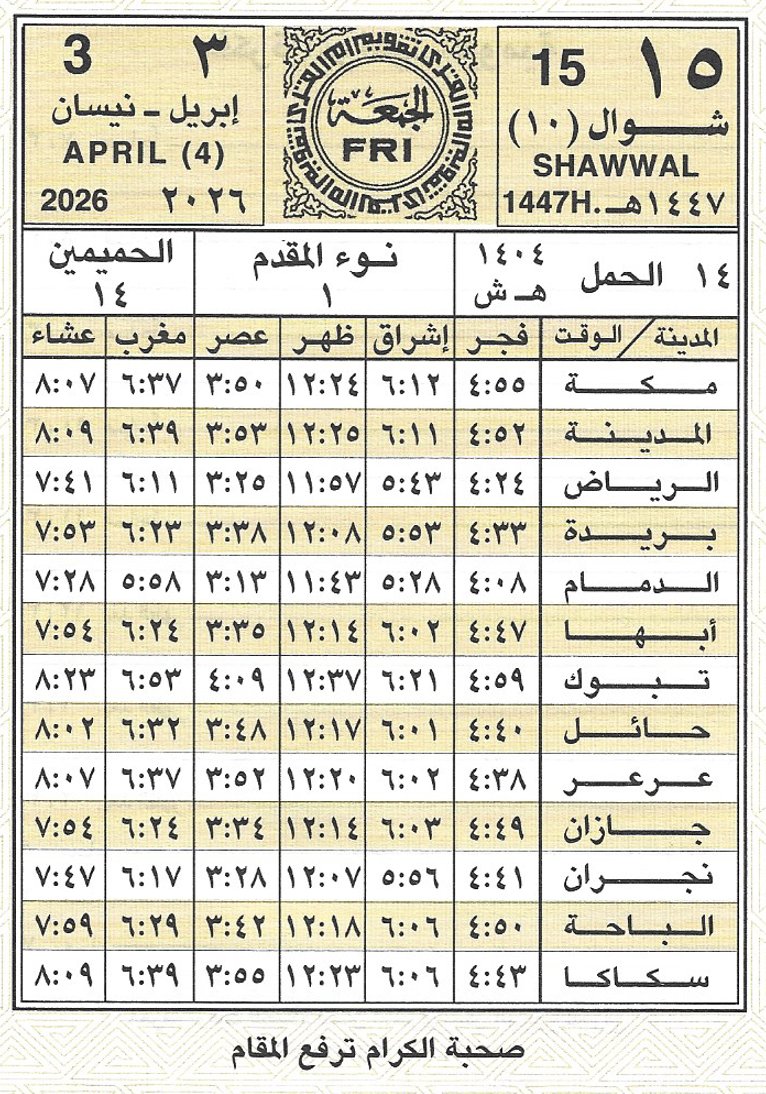 ١٥ 15
شوال (١٠)
SHAWWAL
١٤٤٧هـ. 1447H
الجمعة
FRI
٣ 3
إبريل - نيسان
APRIL (4)
2026 ٢٠٢٦
١٤ الحمل ١٤٠٤ هـ ش
نوء المقدم ١
الحميمين ١٤
المدينة / الوقت فجر إشراق ظهر عصر مغرب عشاء
مكة ٤:٥٥ ٦:١٢ ١٢:٢٤ ٣:٥٠ ٦:٣٧ ٨:٠٧
المدينة ٤:٥٢ ٦:١١ ١٢:٢٥ ٣:٥٣ ٦:٣٩ ٨:٠٩
الرياض ٤:٢٤ ٥:٤٣ ١١:٥٧ ٣:٢٥ ٦:١١ ٧:٤١
بريدة ٤:٣٣ ٥:٥٣ ١٢:٠٨ ٣:٣٨ ٦:٢٣ ٧:٥٣
الدمام ٤:٠٨ ٥:٢٨ ١١:٤٣ ٣:١٣ ٥:٥٨ ٧:٢٨
أبها ٤:٤٧ ٦:٠٢ ١٢:١٤ ٣:٣٥ ٦:٢٤ ٧:٥٤
تبوك ٤:٥٩ ٦:٢١ ١٢:٣٧ ٤:٠٩ ٦:٥٣ ٨:٢٣
حائل ٤:٤٠ ٦:٠١ ١٢:١٧ ٣:٤٨ ٦:٣٢ ٨:٠٢
عرعر ٤:٣٨ ٦:٠٢ ١٢:٢٠ ٣:٥٢ ٦:٣٧ ٨:٠٧
جازان ٤:٤٩ ٦:٠٣ ١٢:١٤ ٣:٣٤ ٦:٢٤ ٧:٥٤
نجران ٤:٤١ ٥:٥٦ ١٢:٠٧ ٣:٢٨ ٦:١٧ ٧:٤٧
الباحة ٤:٥٠ ٦:٠٦ ١٢:١٨ ٣:٤٢ ٦:٢٩ ٧:٥٩
سكاكا ٤:٤٣ ٦:٠٦ ١٢:٢٣ ٣:٥٥ ٦:٣٩ ٨:٠٩
صحبة الكرام ترفع المقام